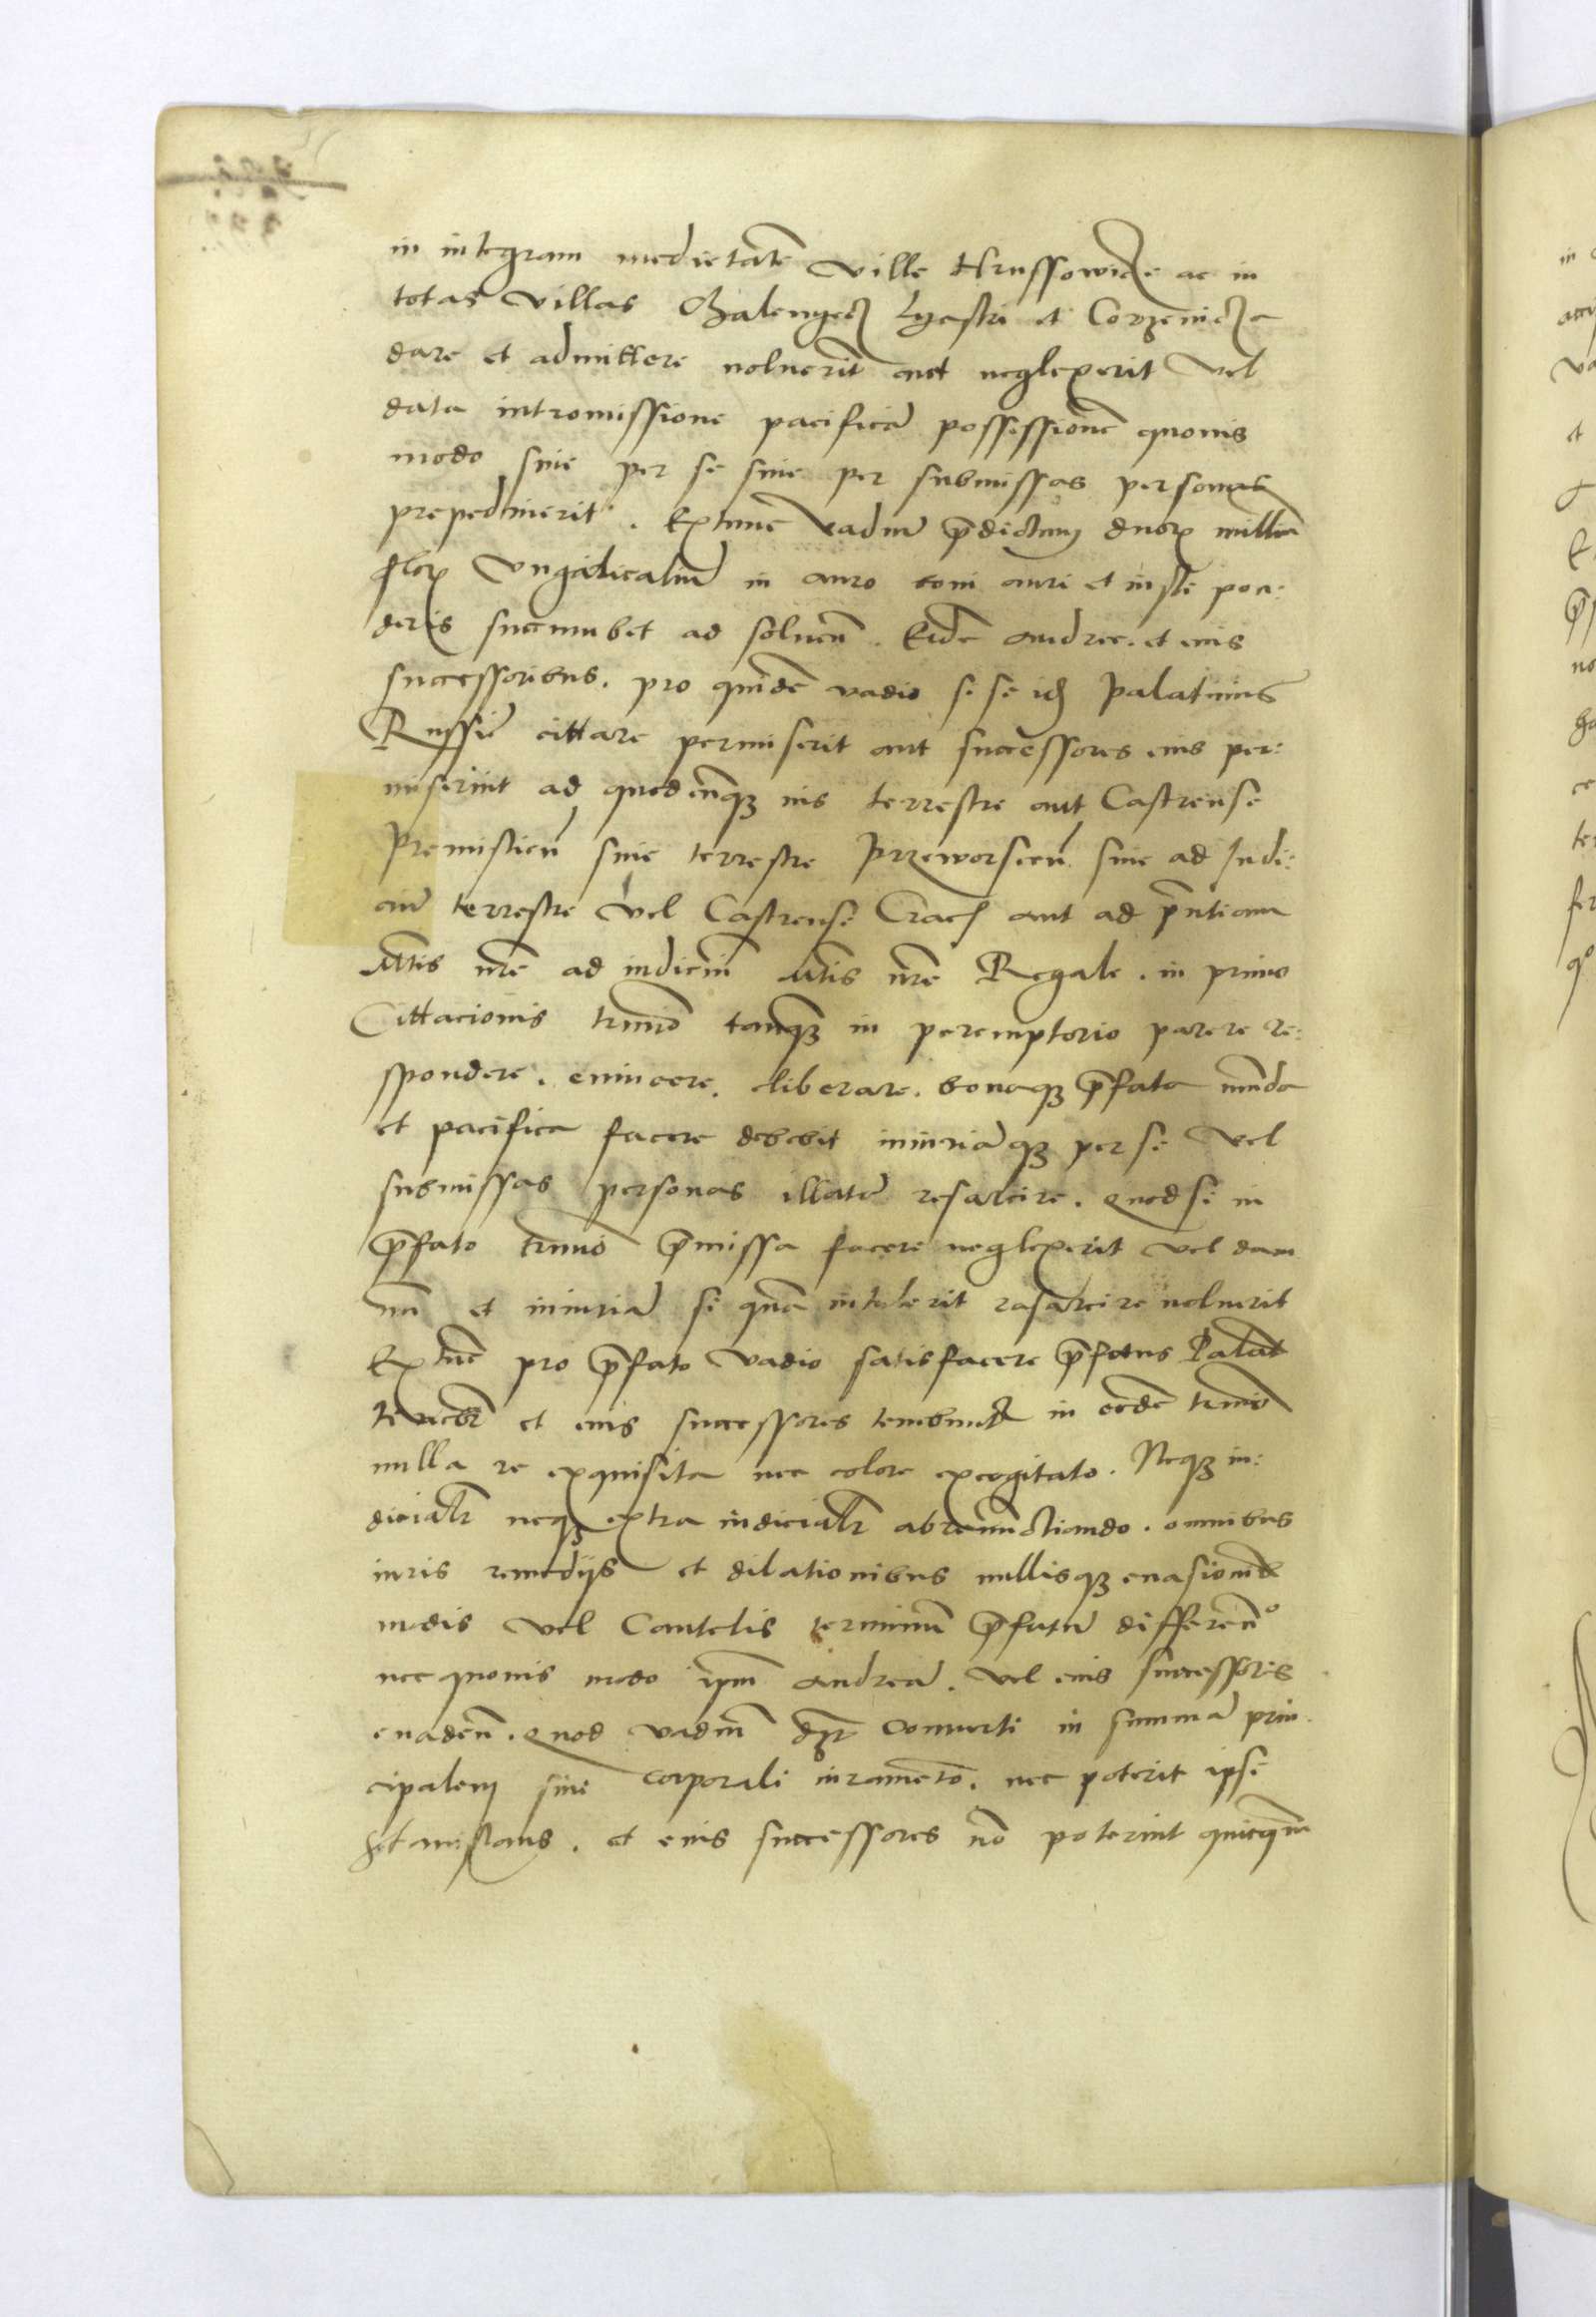 in integram medietatē Ville Hrussowicze ac in
totas Villas Chalenycz Lyastri et Corzenicza
dare et admittere noluerit aut neglexerit Vel
data intromissione pacificā possessionē quouis
modo siue per se siue per submissas personas
prepediuerit. Extunc Vadiū p̄dictum duorꝝ milliū
florꝝ Vngaricaliū in auro boni auri et iusti pon:
deris succumbet ad soluen̄. Eidē Andree. et eius
successoribus. pro quidē vadio si se idē Palatinus
Russiē cittare permiserit aut successores eius per:
miserint ad quodcunqꝫ ius terrestre aut Castrense
Premislien̄ siue terrestre Przeworscen̄ siue ad Iudi:
ciū terrestre Vel Castrense Crac̄ aut ad p̄ntiam
Mtis nrē ad iudiciū Mtis nrē Regale. in primo
Cittacionis termīo tanqꝫ in peremptorio parere re:
spondere. euincere. liberare. bonaqꝫ p̄fata munda
et pacifica facere debebit iniuriāqꝫ per se Vel
submissas personas illatā resarcire. Quod si in
p̄fato termīo p̄missa facere neglexerit vel dam
nū et iniuriā si quā intulerit resarcire noluerit
Extunc pro p̄fato vadio satisfacere p̄fatus Palat̄
tenebit̄ et eius successores tenebunt̄ in eodē termīo
nulla re exquisita nec colore excogitato. Neqꝫ iu:
dicialr̄ neqꝫ extra iudicialr̄ abrenunctiando. omnibus
iuris remedijs et dilationibus nullisqꝫ euasionū
modis vel Cautelis terminū p̄fatū differen̄º
nec quouis modo ipm̄ Andreā. Vel eius successores
euaden̄. Quod vadiū dʒꝛ conuerti in summā prin
cipalem sine corporali iuramēto. nec poterit ipse
et eius successores nō poterint quicqm̄